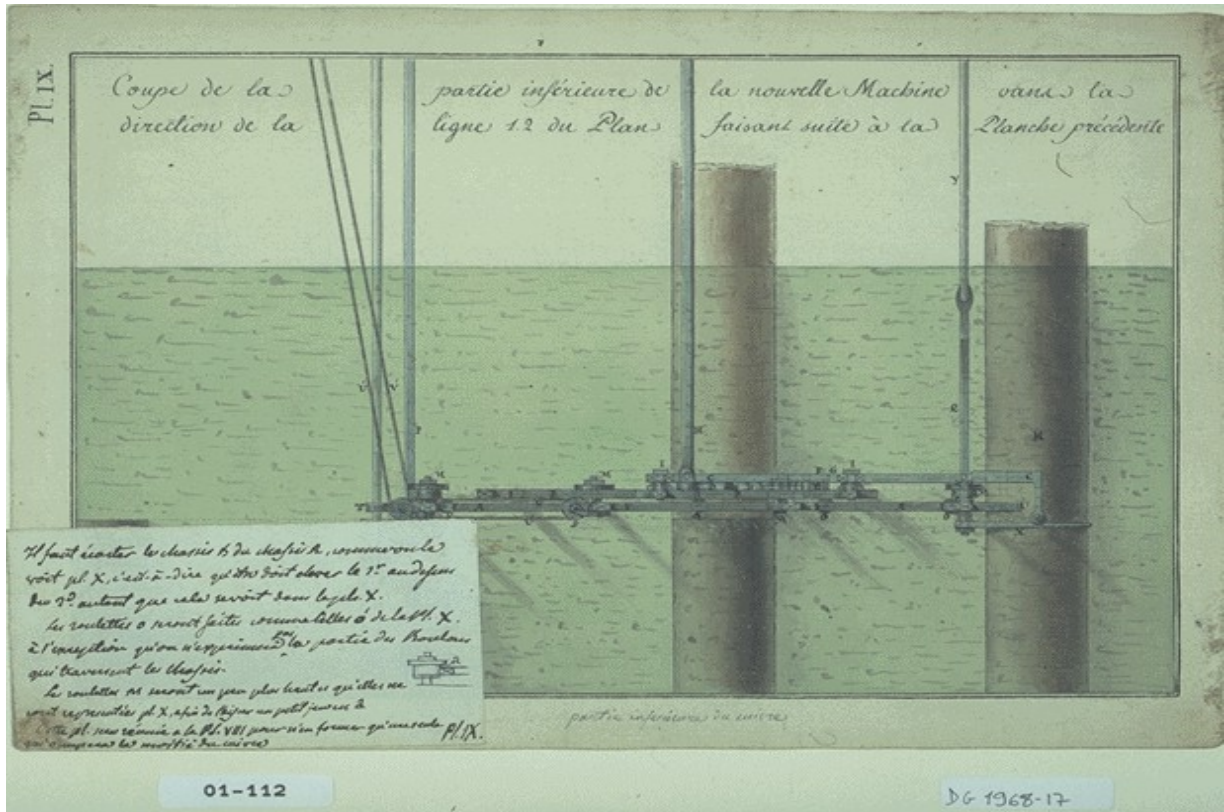 Pl. IX.
Coupe de la partie inférieure de la nouvelle Machine dans la
direction de la ligne 1.2 du Plan faisant suite à la Planche précédente
Il faut écarter le chassis B du chassis A, comme on le
voit pl. X, c'est-à-dire qu'on doit élever le 1er au dessus
du 2d autant que cela se voit dans la pl. X.
Les roulettes o seront faites comme celles ó de la Pl. X.
à l'exception qu'on n'exprimera la partie des Boulons
qui traversent le chassis.
Les roulettes M seront un peu plus hautes qu'elles ne
sont représentées pl. X, afin de laisser un petit jeu
Cette pl. sera réunie à la Pl. VIII pour n'en former qu'une seule
qui occupera la moitié du cuivre
Pl. IX.
partie inférieure du cuivre
01-112
DG 1968-17